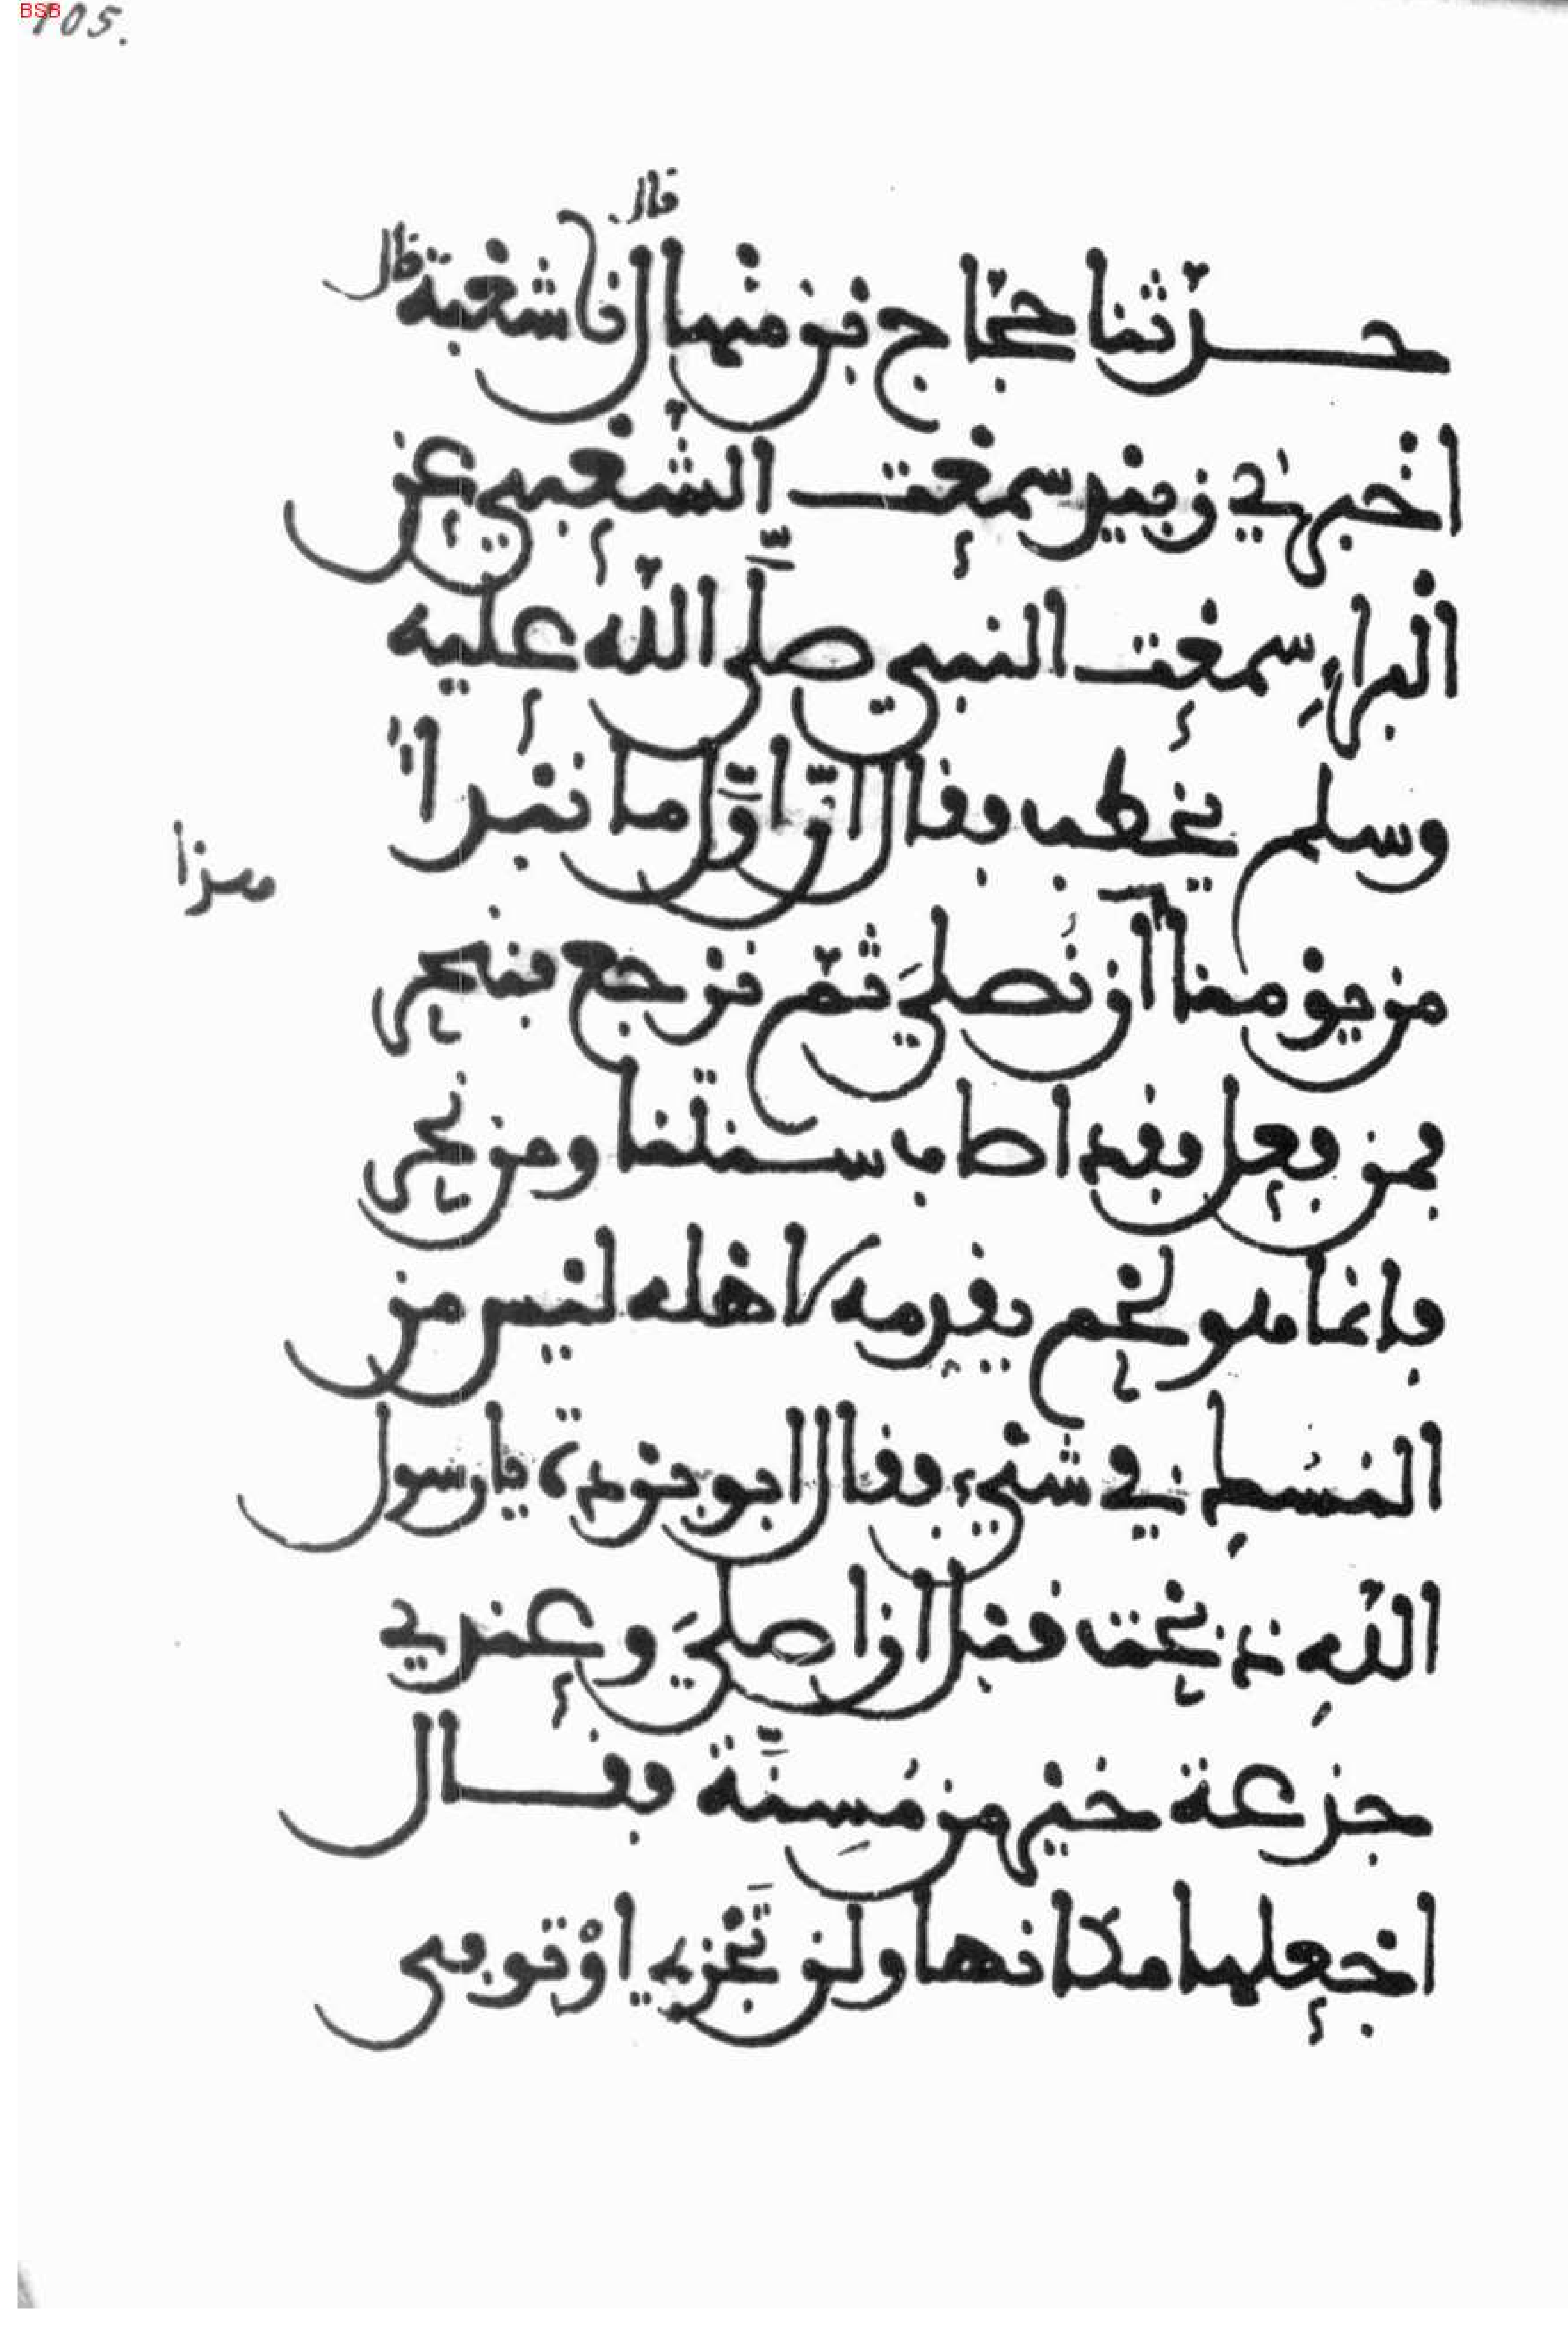 BSB
105.
قال
حدّثنا حجّاج بن منهال نا شعبة قال
اخبرني زبيد سمعت الشّعبي عن
البراءِ سمعت النبي صلّى اللّه عليه
وسلم يخطب فقال انّ اوّل ما نبدا
هذا
من يومنا ان نُصليَ ثمّ نرجع فننحر
فمن فعل فقد اصاب سنتنا ومن نحر
فانما هو لحم يقدمه لاهله ليس من
النسُك في شيء فقال ابو بردة يا رسول
اللّهِ ذبحت قبل ان اصليَ وعندي
جذعة خير من مُسِنَّة فقال
اجعلها مكانها ولن تَجزي او توفي